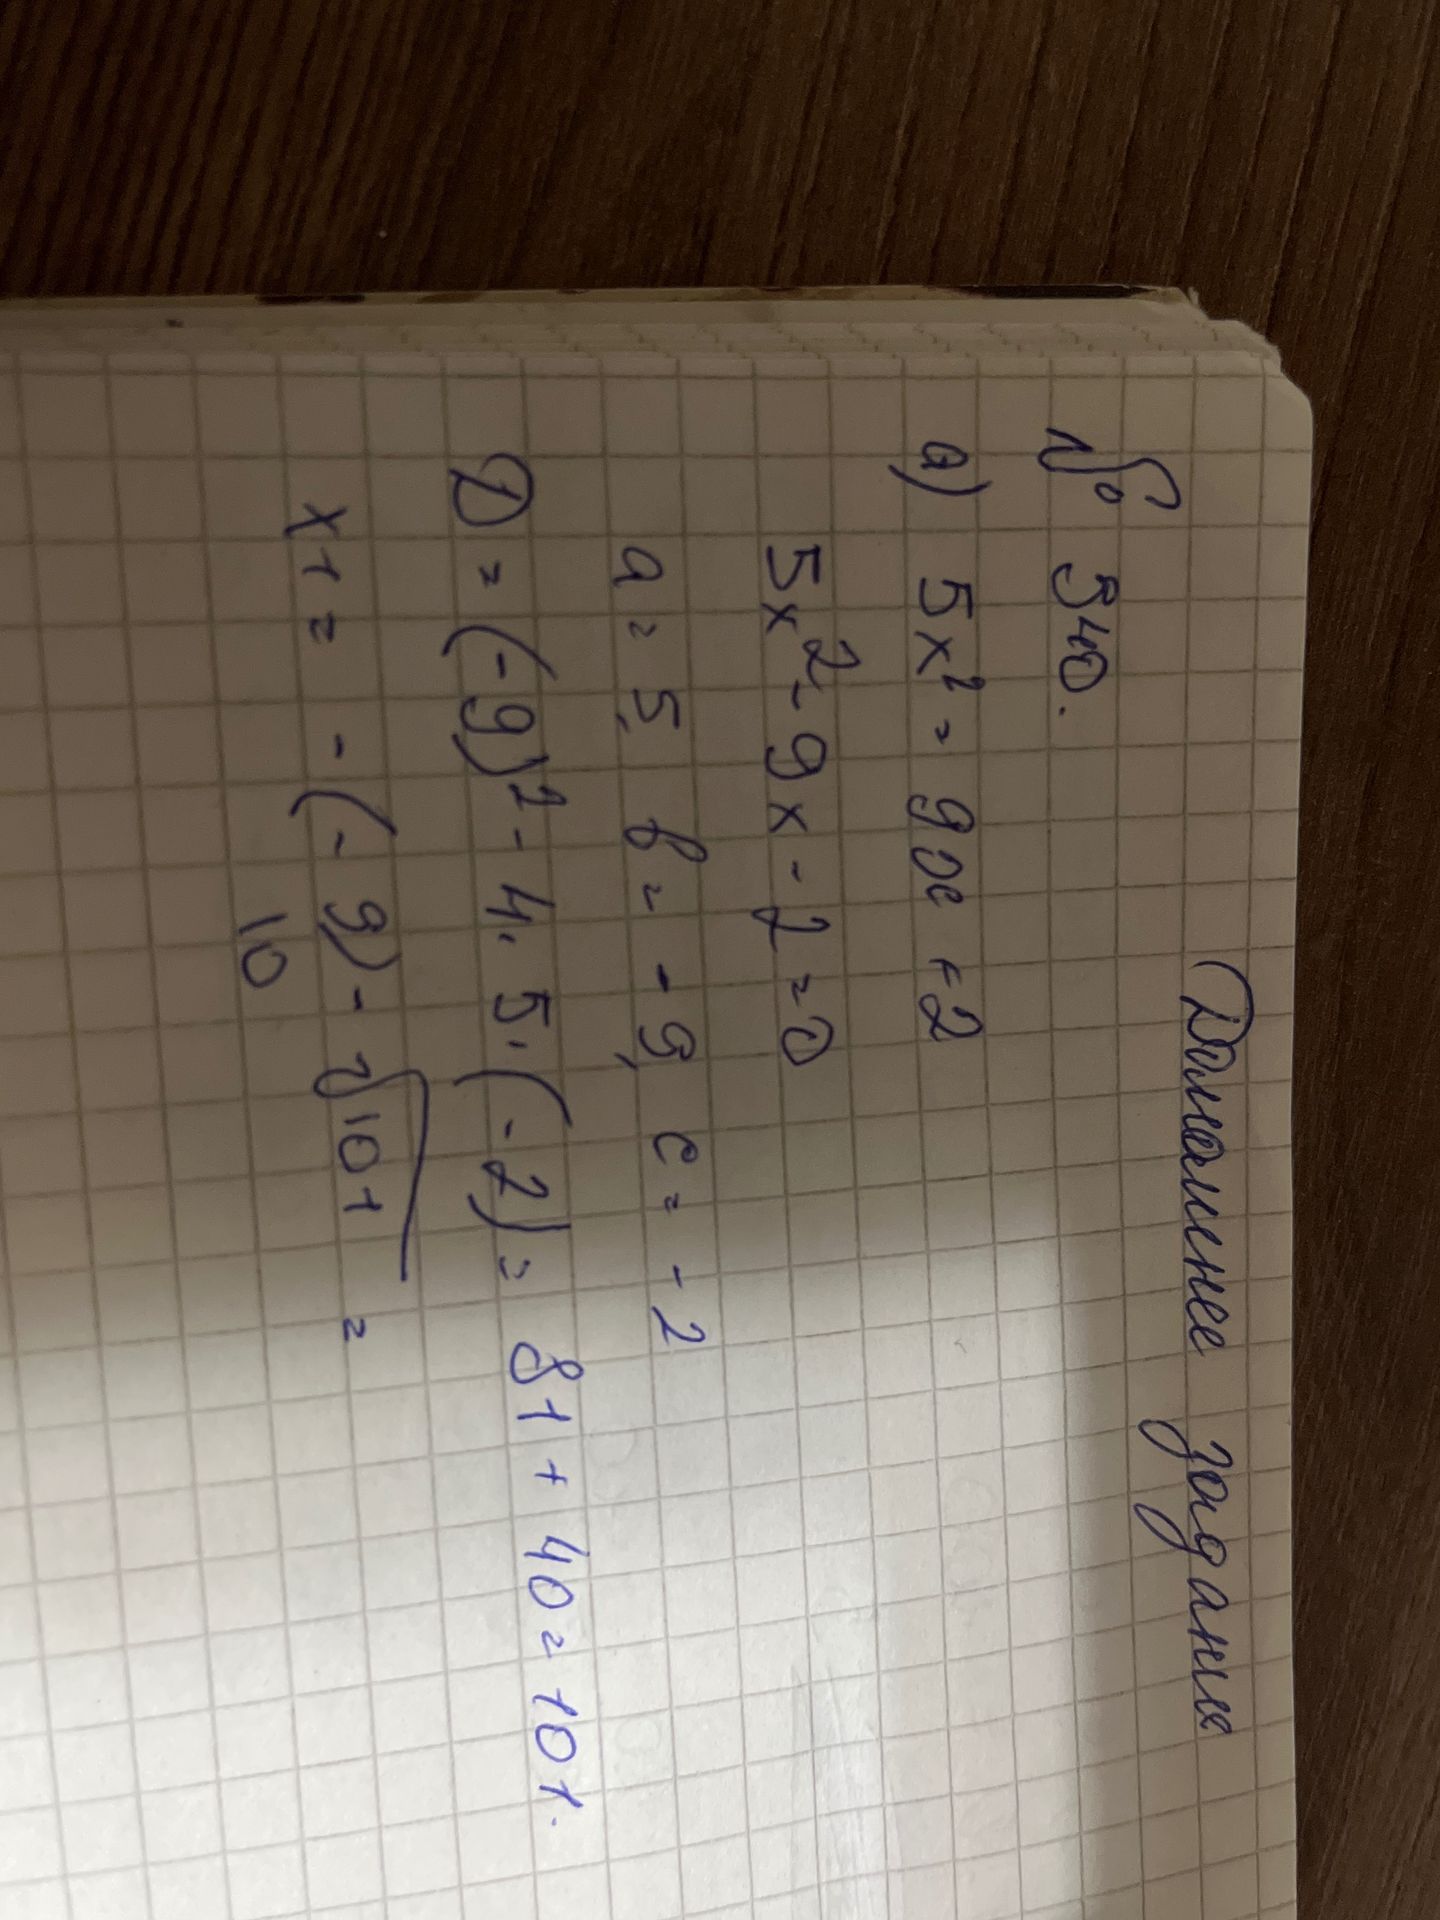 Домашнее задание
№ 540.
а) 5x² = 9x + 2
5x² - 9x - 2 = 0
a = 5, b = -9, c = -2
D = (-9)² - 4 · 5 · (-2) = 81 + 40 = 101.
x1 = -(-9) - √101 =
10